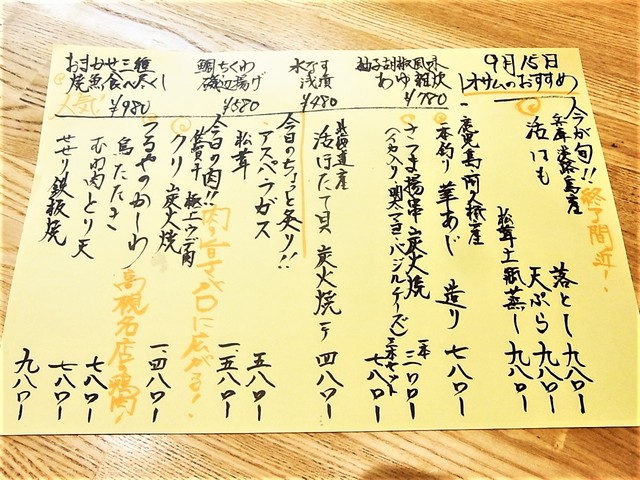 9月15日
オサムのおすすめ
柚子胡椒風味
あゆ雑炊
¥780
水なす
浅漬
¥480
鯛ちくわ
磯辺揚げ
¥580
おまかせ三種
焼魚食べ尽くし
人気!
¥980
今が旬!! 終了間近!
兵庫淡路島産
活はも 落とし 九八〇ー
天ぷら 九八〇ー
松茸土瓶蒸し 九八〇ー
鹿児島阿久根産
一本釣り 華あじ 造り 七八〇ー
さつま揚串 炭火焼 一本 二八〇ー
(イカ入り・明太マヨ・バジルチーズ) 三本セット 七八〇ー
北海道産
活ほたて貝 炭火焼 一ヶ 四八〇ー
今日のちょっと炙り!!
アスペラガス 五八〇ー
松茸 一、五八〇ー
今日の肉!! 肉の旨さが口に広がる!
佐賀牛 極上ウデ肉
クリ 炭火焼 一、四八〇ー
つるやのかしわ 高槻名店の鶏肉!
鳥たたき 七八〇ー
むね肉とり天 七八〇ー
せせり鉄板焼 九八〇ー